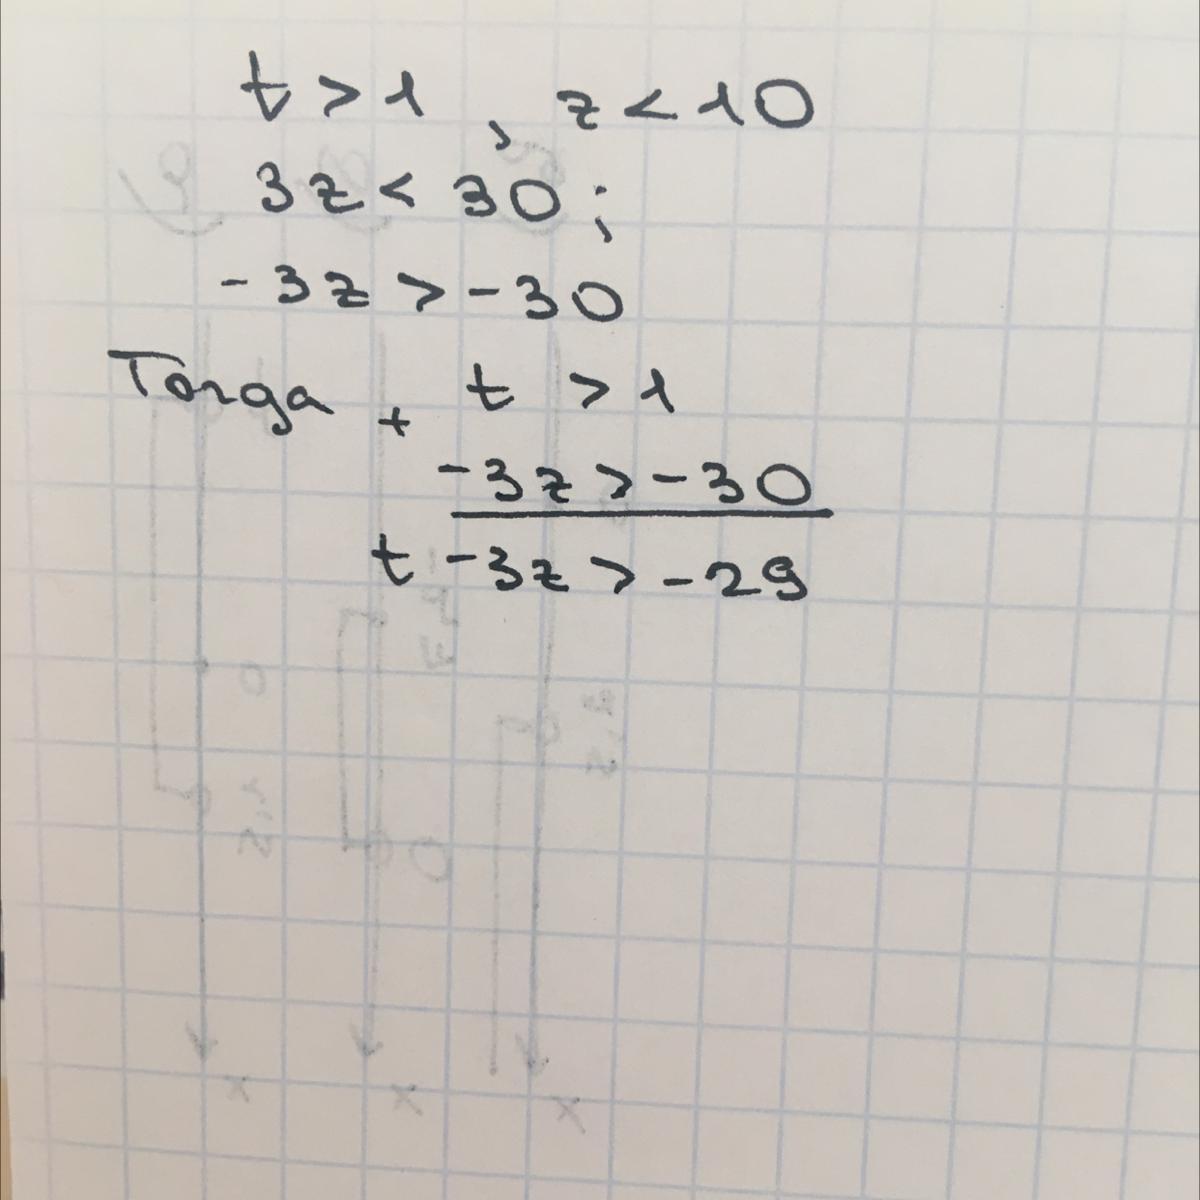 t > 1 , z < 10
3z < 30 ;
-3z > -30
Тогда + t > 1
-3z > -30
t -3z > -29